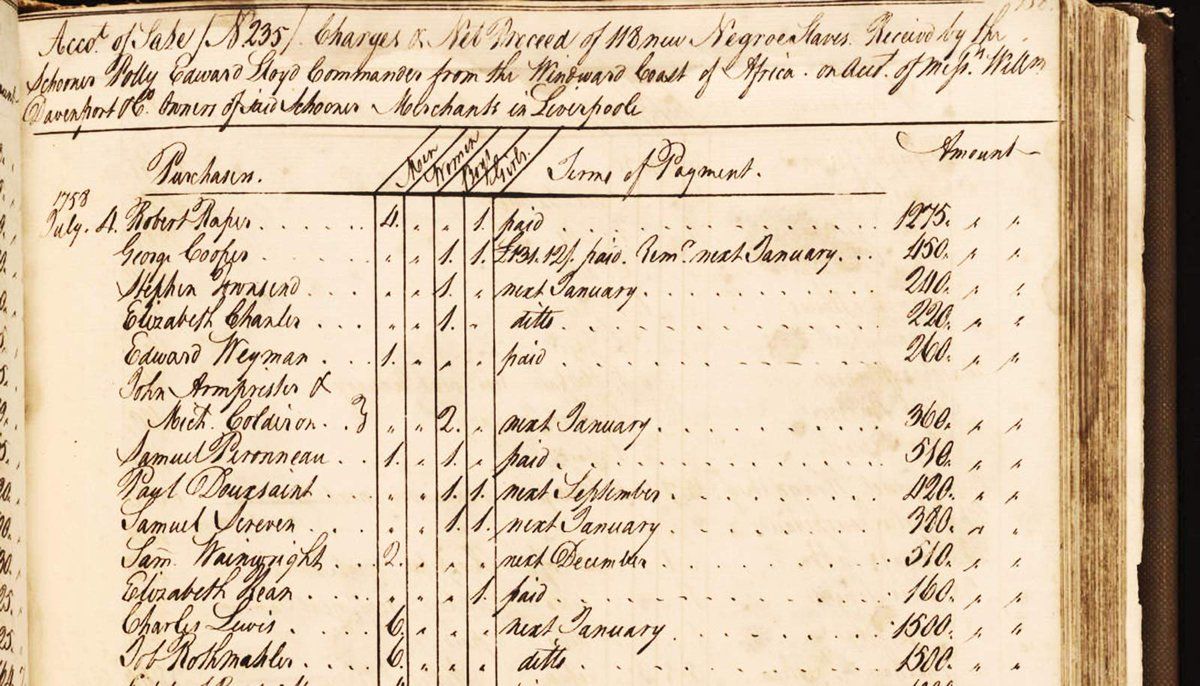 Accot. of Sale (No 235) Charges & Net Proceed of 118 new Negroe Slaves Received by the
Schooner Polly Edward Lloyd Commander from the Windward Coast of Africa. on Acct. of Messrs. Willm
Davenport & Co. Owners of said Schooner Merchants in Liverpoole
Purchasers. Men Women Boys Girls. Terms of Payment. Amount
1758
July. 4. Robert Raper 4. " " 1. paid 1275. " "
George Cooper " " 1. 1. £131.12/. paid. Remr. next January 450. " "
Stephen Townsend " " 1. " next January 240. " "
Elizabeth Chanler " " 1. " ditto 220. " "
Edward Weyman 1. " " " paid 260. " "
John Armprister &
Mich. Coldiron } " " 2. " next January 360. " "
Samuel Peronneau 1. " 1. " paid 510. " "
Paul Douxsaint " " 1. 1. next September 420. " "
Samuel Screven " " 1. 1. next January 320. " "
Sam. Wainwright 2. " " " next December 510. " "
Elizabeth Dean " " " 1. paid 160. " "
Charles Lewis 6. " " " next January 1500. " "
Job Rothmahler 6. " " " ditto 1500. " "